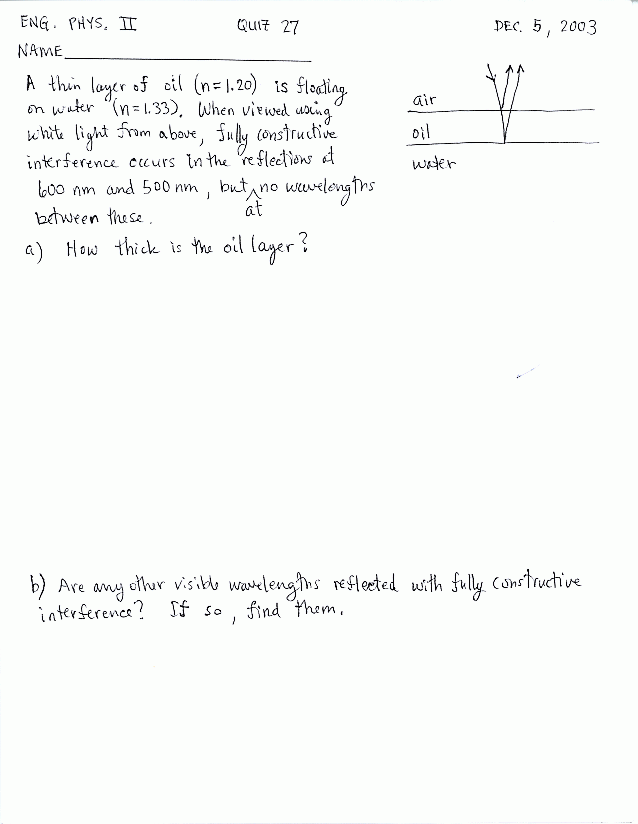 ENG. PHYS. II QUIZ 27 DEC. 5, 2003
NAME
A thin layer of oil (n=1.20) is floating
on water (n=1.33). When viewed using
white light from above, fully constructive
interference occurs in the reflections at
600 nm and 500 nm, but ^ no wavelengths
at
between these.
air
oil
water
a) How thick is the oil layer?
b) Are any other visible wavelengths reflected with fully constructive
interference? If so, find them.